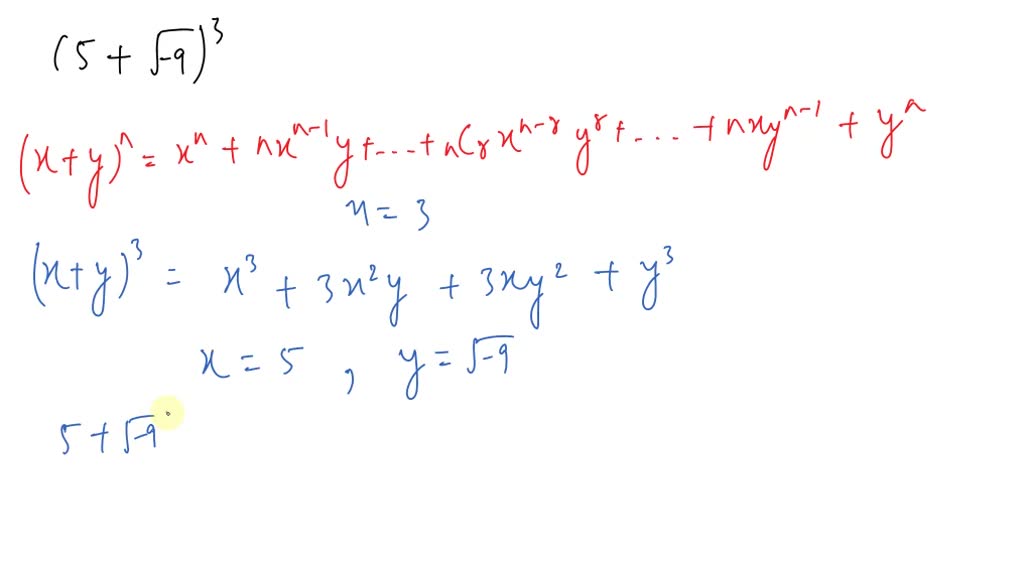 (5 + √-9)³
(x+y)ⁿ = xⁿ + nxⁿ⁻¹y + ... + nCr xⁿ⁻ʳ yʳ + ... + nxyⁿ⁻¹ + yⁿ
n = 3
(x+y)³ = x³ + 3x²y + 3xy² + y³
x = 5 , y = √-9
5 + √-9